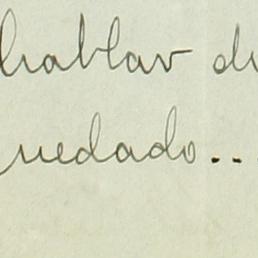 hablar de
quedado...